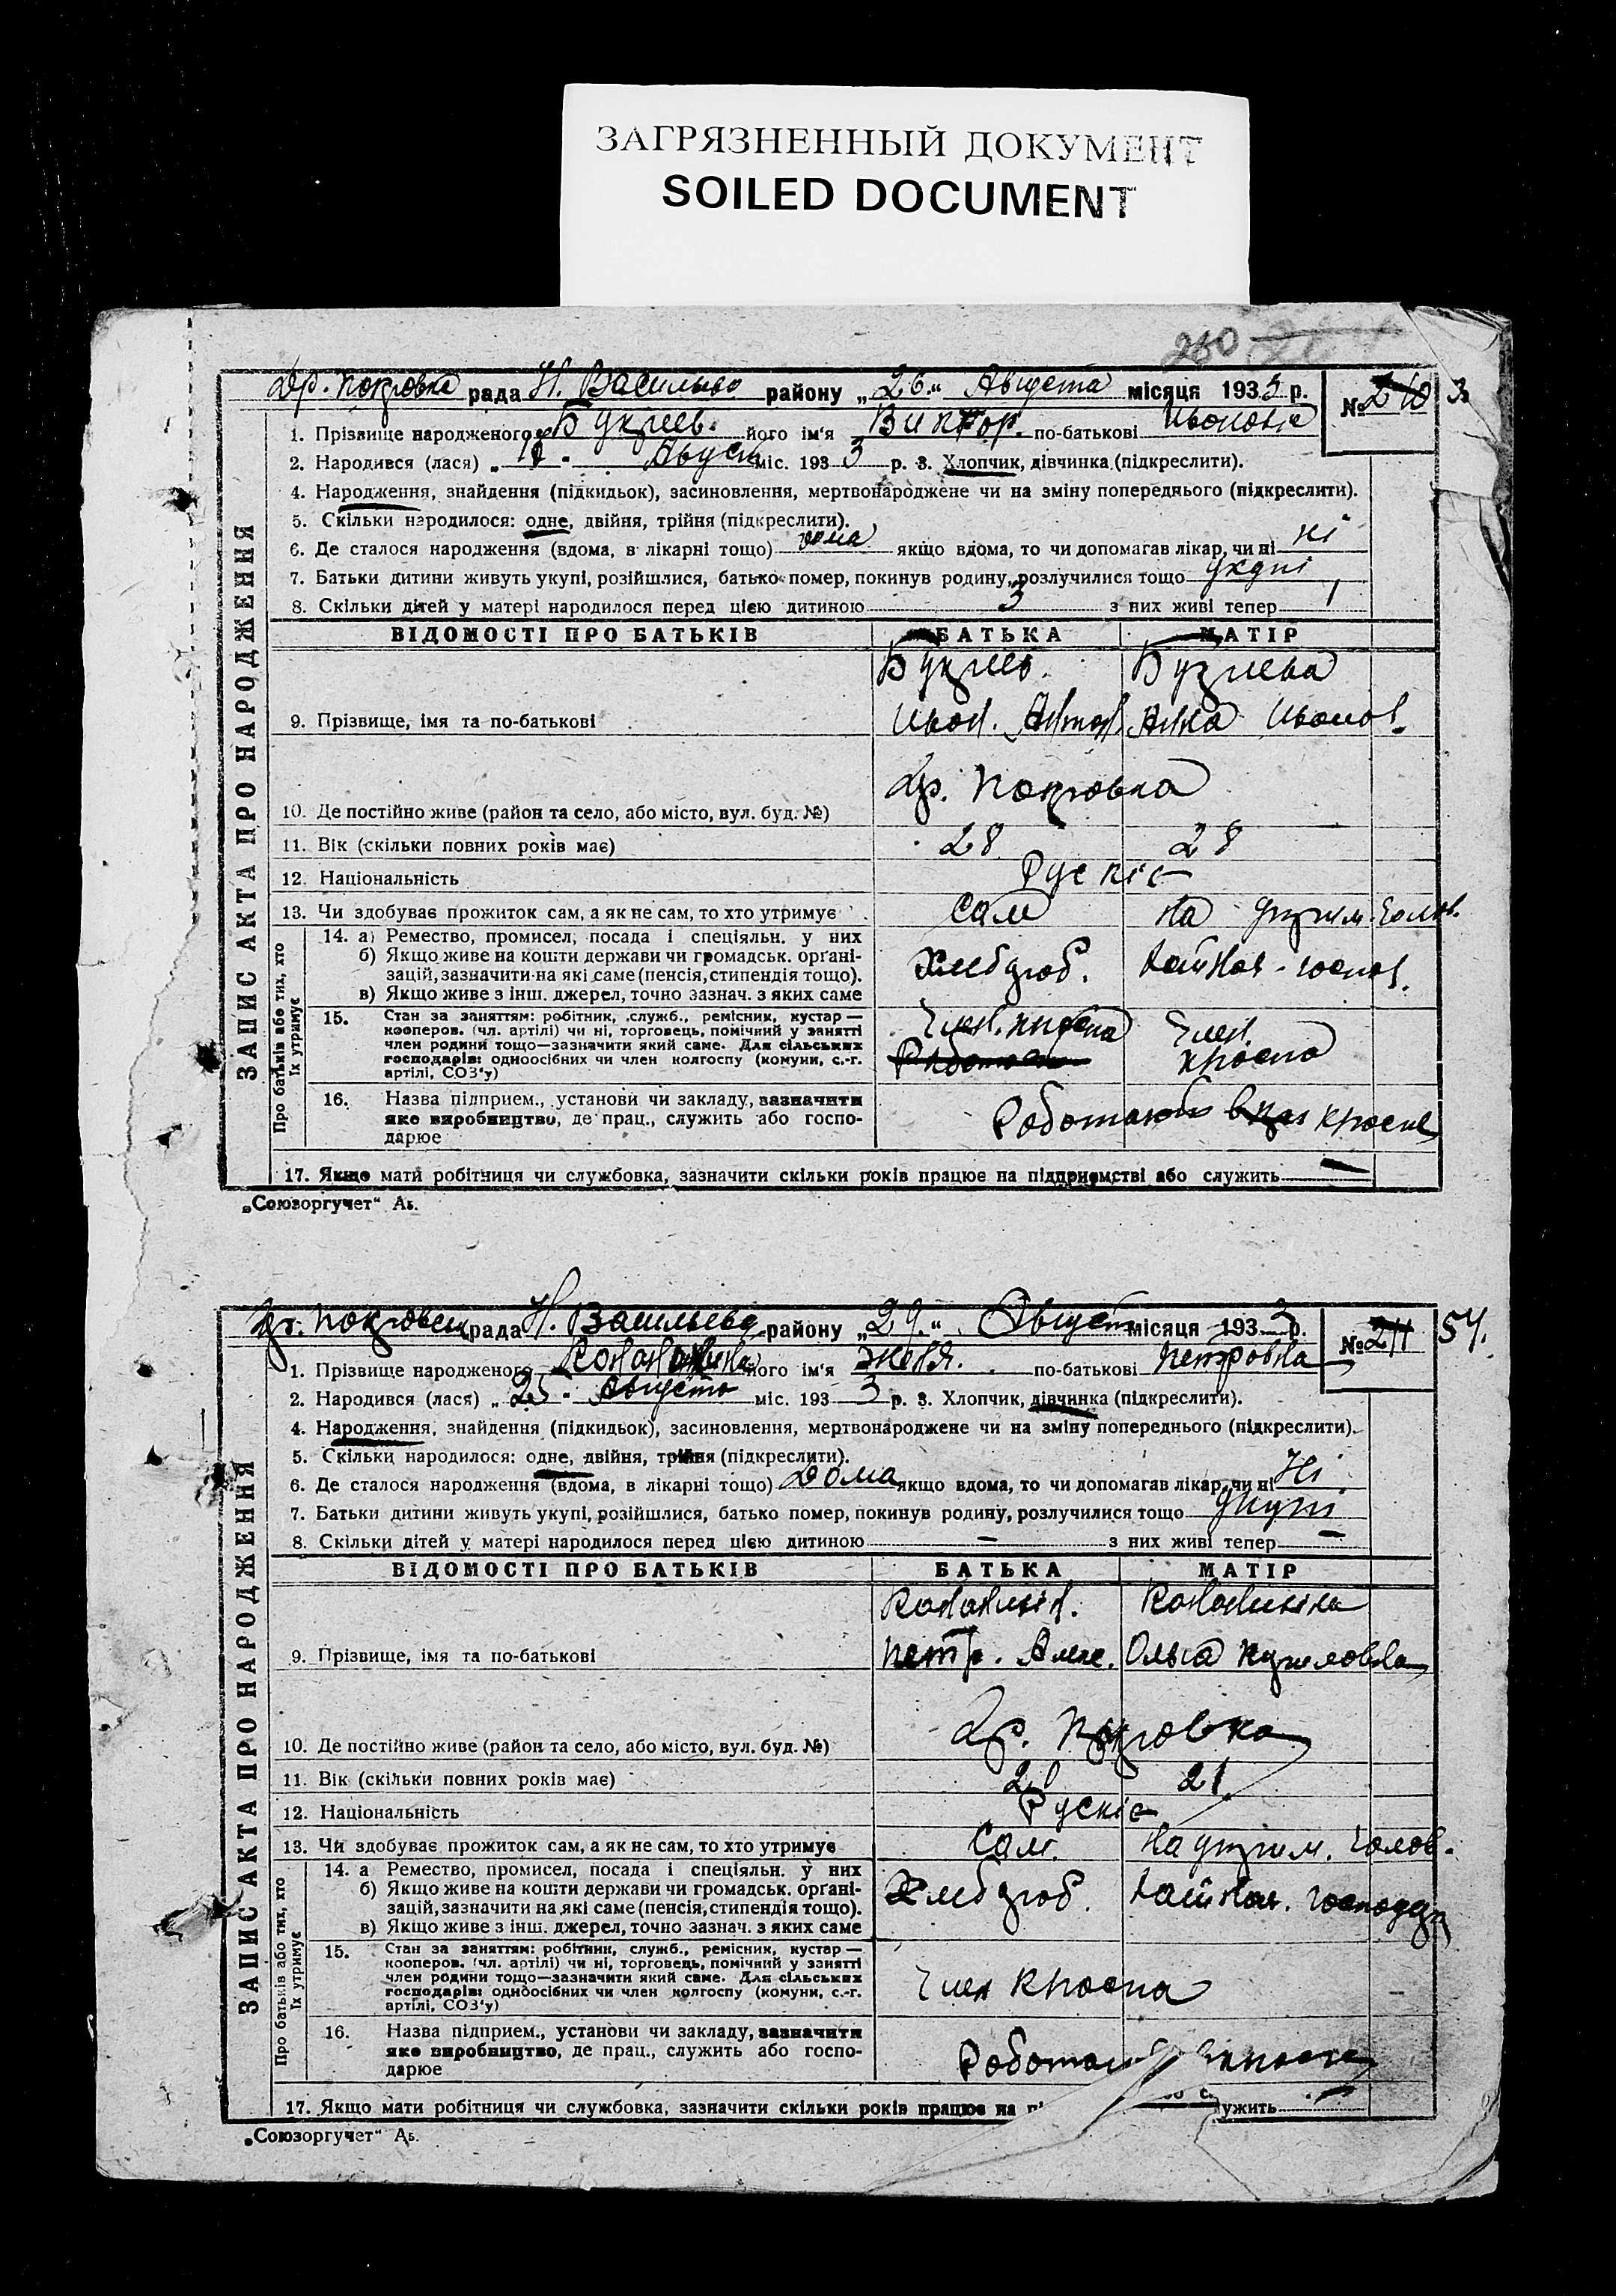 ЗАГРЯЗНЕННЫЙ ДОКУМЕНТ
SOILED DOCUMENT
260
Др. Покровка рада Н. Васильево району „26“ Августа місяця 1933 р. № 240 3
1. Прізвище народженого Букреев. його ім'я Виктор. по-батькові
2. Народився (лася) „ Август міс. 193 3 р. 3. Хлопчик, дівчинка (підкреслити).
4. Народження, знайдення (підкидьок), засиновлення, мертвонароджене чи на зміну попереднього (підкреслити).
5. Скільки народилося: одне, двійня, трійня (підкреслити).
6. Де сталося народження (вдома, в лікарні тощо) дома якщо вдома, то чи допомагав лікар, чи ні ні
7. Батьки дитини живуть укупі, розійшлися, батько помер, покинув родину, розлучилися тощо укупі
8. Скільки дітей у матері народилося перед цією дитиною 3 з них живі тепер 1
ВІДОМОСТІ ПРО БАТЬКІВ БАТЬКА МАТІР
Букреев.
9. Прізвище, імя та по-батькові
Др. Покровка
10. Де постійно живе (район та село, або місто, вул. буд. №)
11. Вік (скільки повних років має) 28 28
12. Національність Рускіе
13. Чи здобуває прожиток сам, а як не сам, то хто утримує Сам На утрим. голов.
14. а) Ремество, промисел, посада і спеціяльн. у них
б) Якщо живе на кошти держави чи громадськ. орґані-
зацій, зазначити на які саме (пенсія, стипендія тощо).
в) Якщо живе з інш. джерел, точно зазнач. з яких саме
Хлебороб.
15. Стан за заняттям: робітник, служб., ремісник, кустар —
кооперов. (чл. артілі) чи ні, торговець, помічний у занятті
член родини тощо—зазначити який саме. Для сільських
господарів: одноосібних чи член колгоспу (комуни, с.-г.
артілі, СОЗ'у)
16. Назва підприєм., установи чи закладу, зазначити
яке виробництво, де прац., служить або госпо-
дарює
17. Якщо мати робітниця чи службовка, зазначити скільки років працює на підприємстві або служить
ЗАПИС АКТА ПРО НАРОДЖЕННЯ
Про батьків або тих, хто
їх утримує
„Союзоргучет“
рада Н. Васильево району „29.“ Август місяця 1933 р. № 241 54.
1. Прізвище народженого його ім'я по-батькові Петровна
2. Народився (лася) „ 25 Августа міс. 193 3 р. 3. Хлопчик, дівчинка (підкреслити).
4. Народження, знайдення (підкидьок), засиновлення, мертвонароджене чи на зміну попереднього (підкреслити).
5. Скільки народилося: одне, двійня, трійня (підкреслити).
6. Де сталося народження (вдома, в лікарні тощо) Дома якщо вдома, то чи допомагав лікар, чи ні Ні
7. Батьки дитини живуть укупі, розійшлися, батько помер, покинув родину, розлучилися тощо укупі
8. Скільки дітей у матері народилося перед цією дитиною — з них живі тепер —
ВІДОМОСТІ ПРО БАТЬКІВ БАТЬКА МАТІР
9. Прізвище, імя та по-батькові Петр. Алек. Ольга
Др. Покровка
10. Де постійно живе (район та село, або місто, вул. буд. №)
11. Вік (скільки повних років має) 21
12. Національність Рускіе
13. Чи здобуває прожиток сам, а як не сам, то хто утримує Сам. На утрим. голов.
14. а Ремество, промисел, посада і спеціяльн. у них
б) Якщо живе на кошти держави чи громадськ. орґані-
зацій, зазначити на які саме (пенсія, стипендія тощо).
в) Якщо живе з інш. джерел, точно зазнач. з яких саме
Хлебороб.
15. Стан за заняттям: робітник, служб., ремісник, кустар —
кооперов. (чл. артілі) чи ні, торговець, помічний у занятті
член родини тощо—зазначити який саме. Для сільських
господарів: одноосібних чи член колгоспу (комуни, с.-г.
артілі, СОЗ'у)
16. Назва підприєм., установи чи закладу, зазначити
яке виробництво, де прац., служить або госпо-
дарює
17. Якщо мати робітниця чи службовка, зазначити скільки років працює на
ЗАПИС АКТА ПРО НАРОДЖЕННЯ
Про батьків або тих, хто
їх утримує
„Союзоргучет“